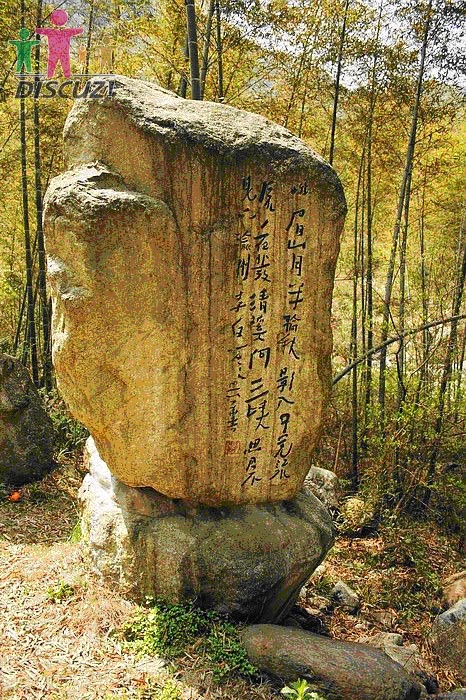 DISCUZ!
峨眉山月半輪秋影入平羌江
水流夜發清溪向三峽思君不
見下渝州 李白